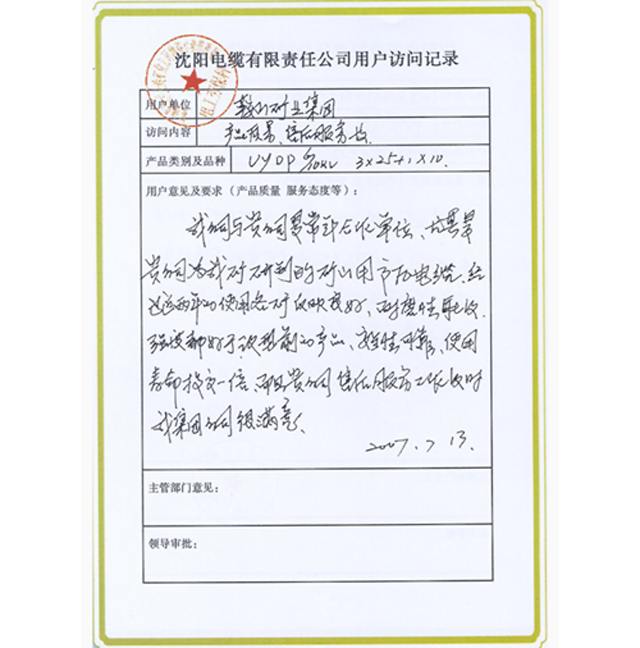 沈阳电缆有限责任公司用户访问记录
用户单位 鞍山矿业集团
访问内容 产品质量、售后服务
产品类别及品种 UYDP 3×25+1×10.
用户意见及要求（产品质量 服务态度等）:
我公司与贵公司是常年合作单位、尤其是
贵公司为我矿研制的矿山用 电缆、经
过这两年的使用各矿反映良好、耐磨性
强度都好于改型前的产品、安全性可靠、使用
寿命 一倍、而且贵公司售后服务工作及时
我集团公司很满意。
2007.7 13.
主管部门意见:
领导审批: